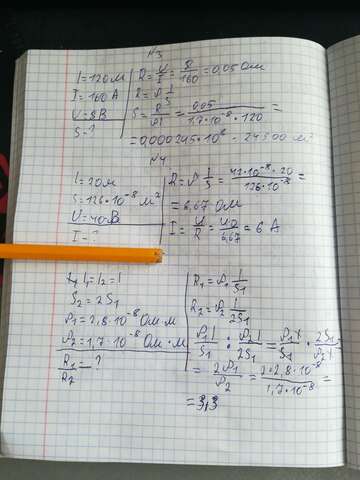 N3
l = 120 м
I = 160 А
U = 8 В
S = ?
R = U/I = 8/160 = 0,05 Ом
R = ρ l/S
= 0,000245 · 10⁸ = 24500 м²
N4
l = 20 м
S = 126 · 10⁻⁸ м²
U = 40 В
I = ?
R = ρ l/S = 42 · 10⁻⁸ · 20 / 126 · 10⁻⁸ =
= 6,67 Ом
I = U/R = 40/6,67 = 6 А
l₁ = l₂ = l
S₂ = 2S₁
ρ₁ = 2,8 · 10⁻⁸ Ом · м
ρ₂ = 1,7 · 10⁻⁸ Ом · м
R₁/R₂ = ?
R₁ = ρ₁ l/S₁
R₂ = ρ₂ l/2S₁
ρ₁ l/S₁ : ρ₂ l/2S₁ = ρ₁ l/S₁ · 2S₁/ρ₂ l
= 2ρ₁/ρ₂ = 2 · 2,8 · 10⁻⁸ / 1,7 · 10⁻⁸ =
= 3,3